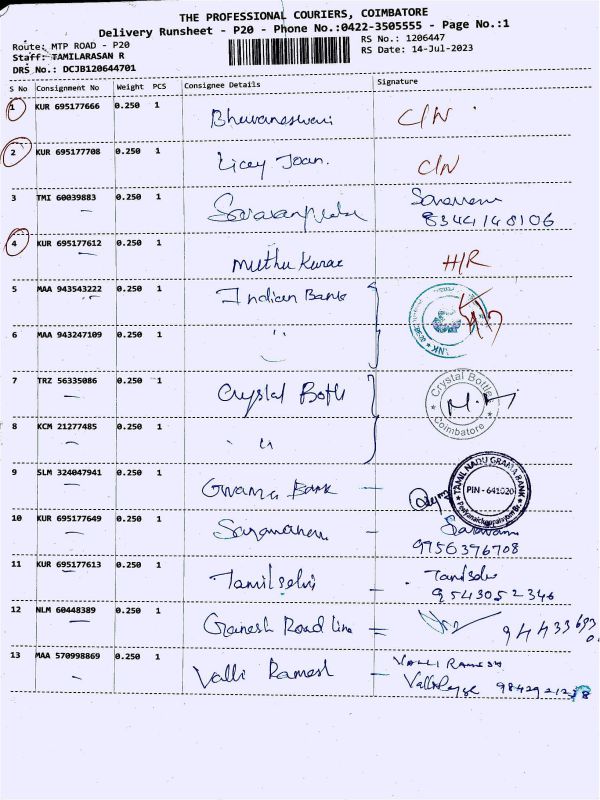 THE PROFESSIONAL COURIERS, COIMBATORE
Delivery Runsheet - P20 - Phone No.:0422-3505555 - Page No.:1
Route: MTP ROAD - P20
RS No.: 1206447
Staff: TAMILARASAN R
RS Date: 14-Jul-2023
DRS No.: DCJB120644701
S No Consignment No Weight PCS Consignee Details Signature
1 KUR 695177666 0.250 1 Bhuvaneswari C/N
2 KUR 695177708 0.250 1 Licey Joan. C/N
3 TMI 60039883 0.250 1
8344148106
4 KUR 695177612 0.250 1 Muthu H/R
5 MAA 943543222 0.250 1 Indian Bank
6 MAA 943247109 0.250 1 "
7 TRZ 56335086 0.250 1 Crystal Bottle Crystal Bottles
Coimbatore
8 KCM 21277485 0.250 1 "
9 SLM 324047941 0.250 1 Bank TAMIL NADU GRAMA BANK
PIN - 641020
10 KUR 695177649 0.250 1
9756396708
11 KUR 695177613 0.250 1 Tamilselvi
9543052346
12 NLM 60448389 0.250 1 Ganesh Road Line
13 MAA 570998869 0.250 1 Valli Ramesh VALLI RAMESH